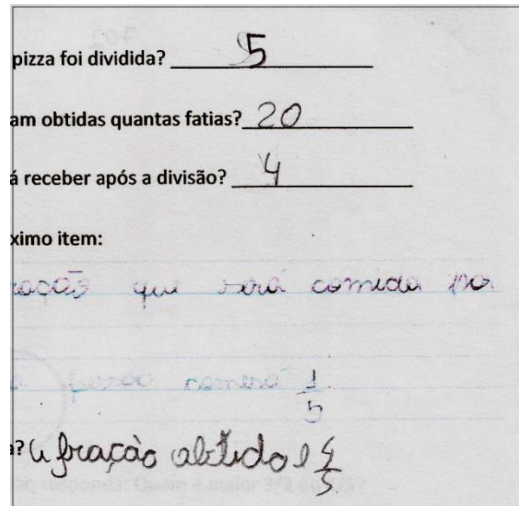 pizza foi dividida? 5
am obtidas quantas fatias? 20
á receber após a divisão? 4
ximo item:
ração que será comida por
a pessoa comerá 1/5
a? a fração obtido é 4/5